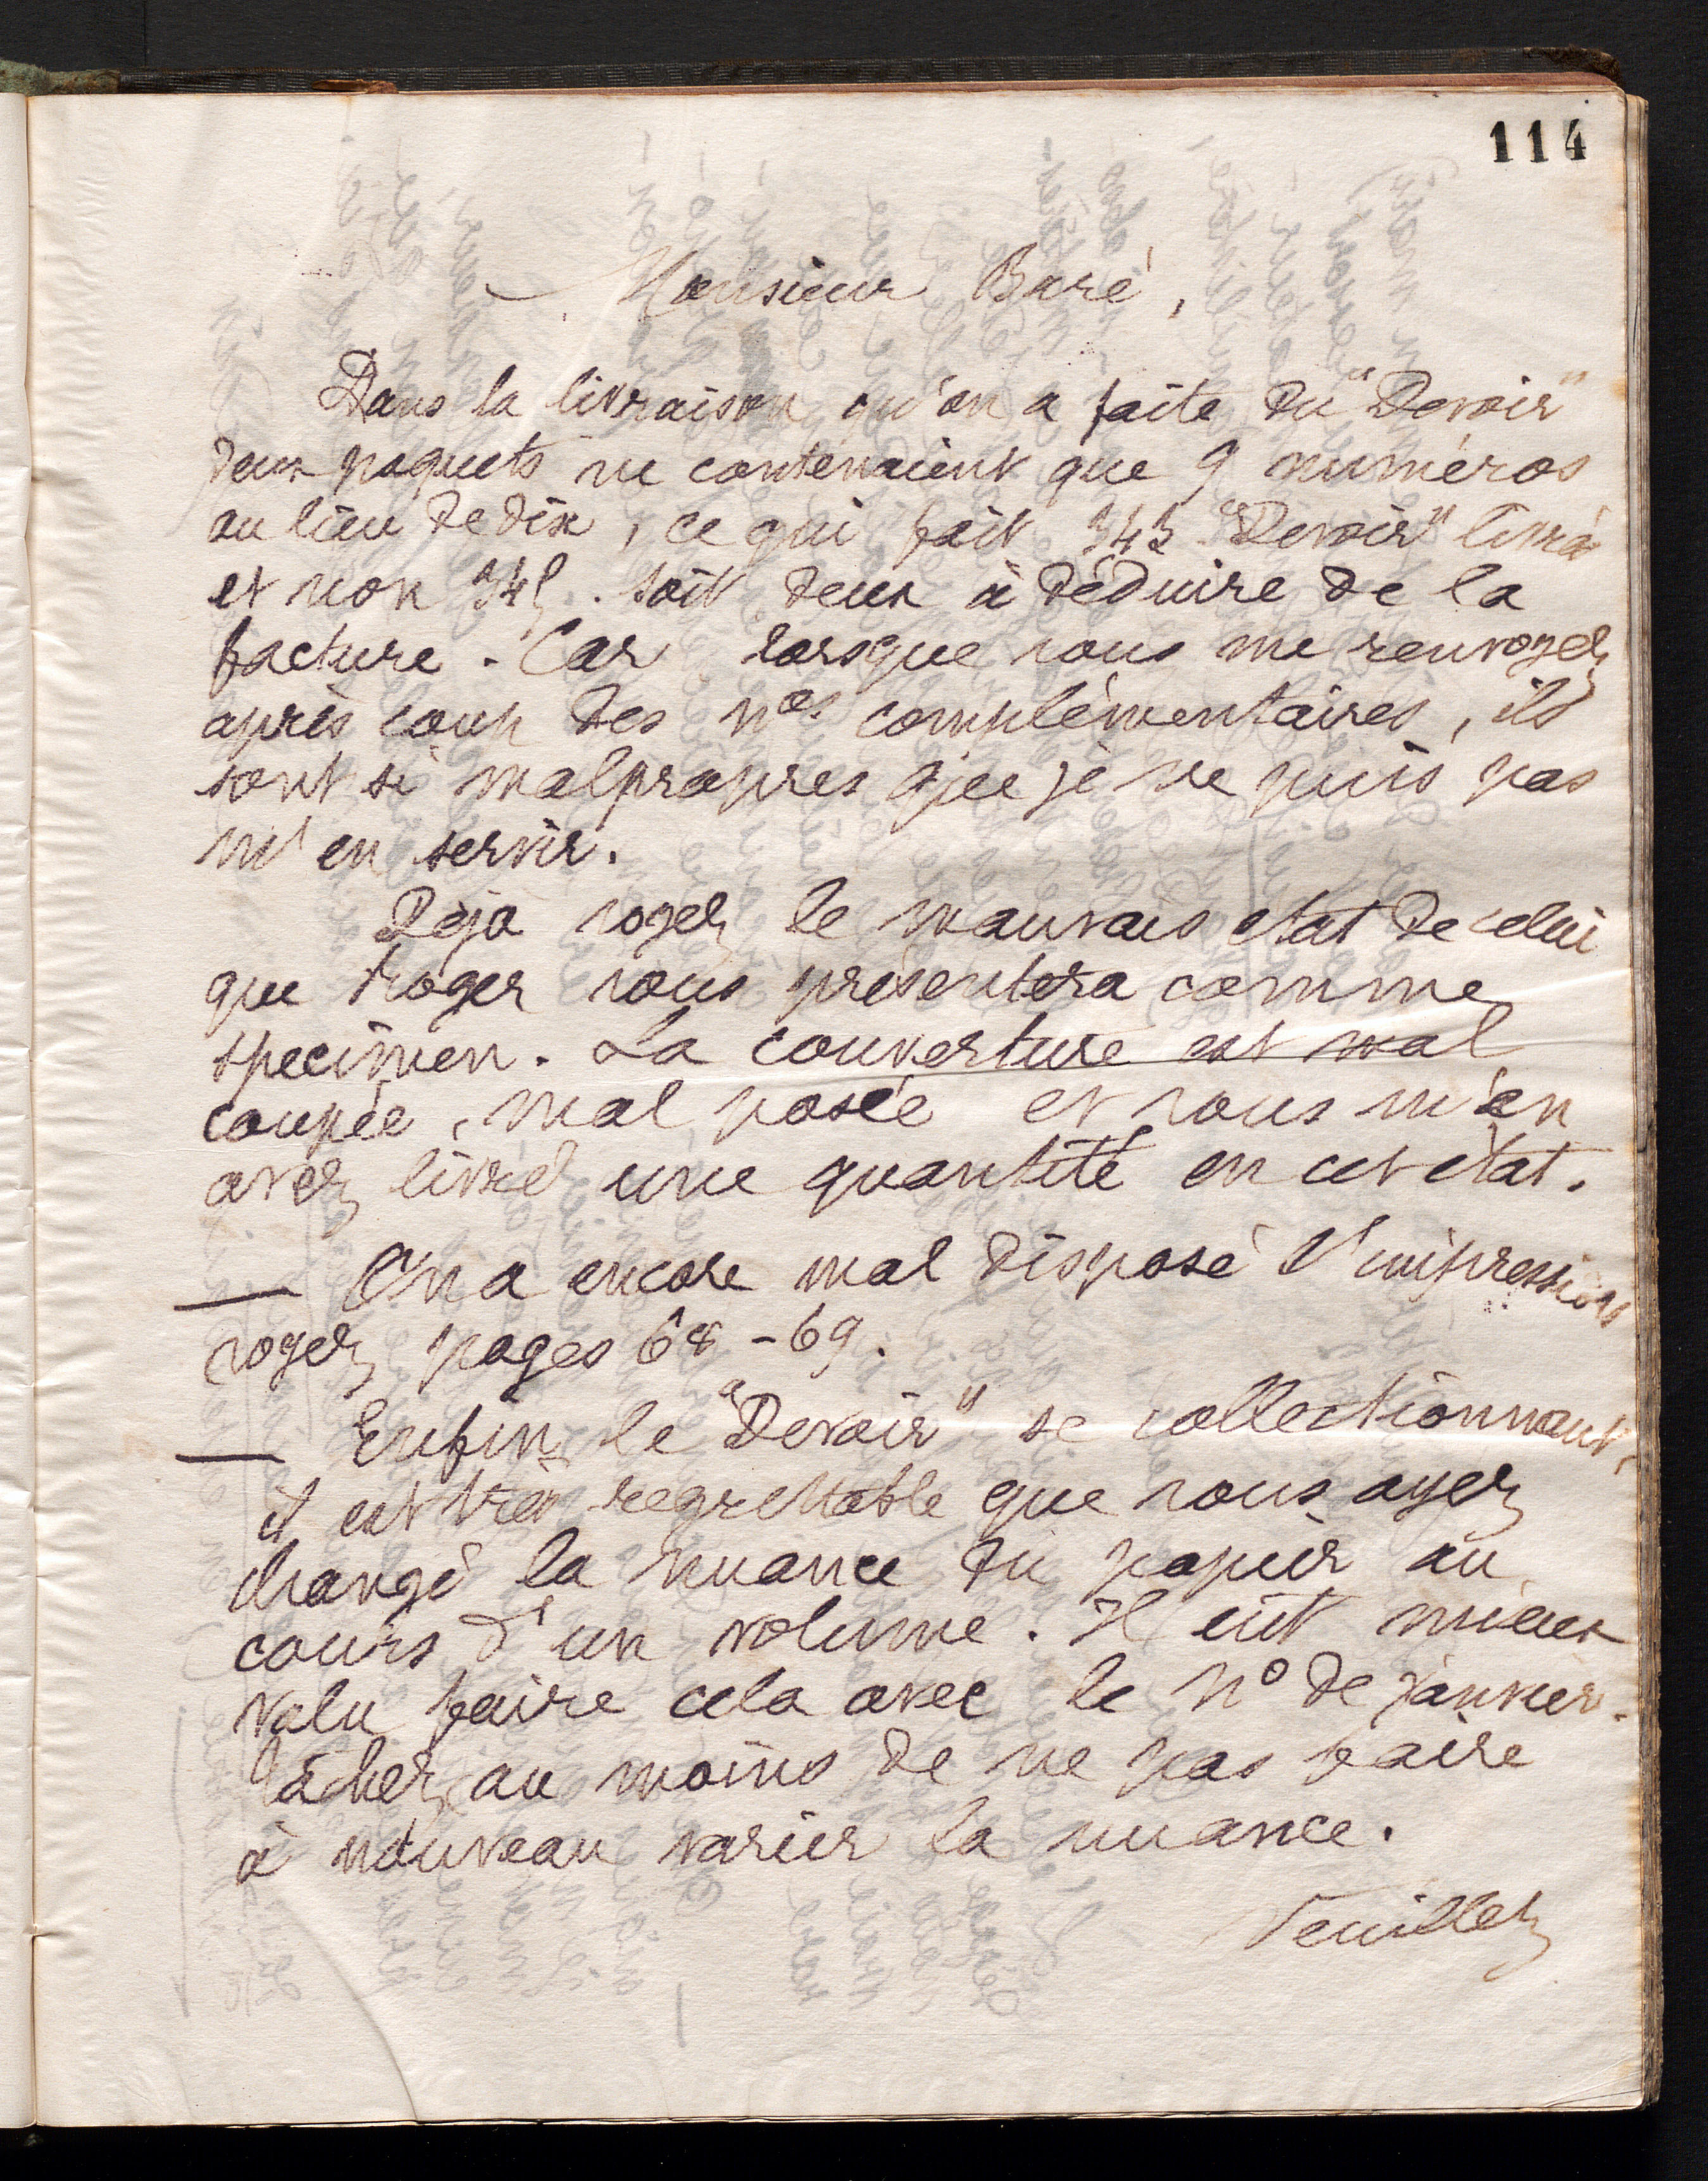 114
Monsieur Baré,
Dans la livraison qu'on a faite du "Devoir"
deux paquets ne contenaient que 9 numéros
au lieu de dix, ce qui fait 343 "Devoir" livrés
et non 345. Soit deux à déduire de la
facture. Car lorsque vous me renvoyez
après coup des nos complémentaires, ils
sont si malpropres que je ne puis pas
m'en servir.
Déjà voyez le mauvais état de celui
que Roger vous présentera comme
specimen. La couverture est mal
coupée, mal posée et vous m'en
avez livré une quantité en cet état.
— On a encore mal disposé l'impression
voyez pages 68-69.
— Enfin le "Devoir" se collectionnant,
il est très regrettable que vous ayez
changé la nuance du papier au
cours d'un volume. Il eut mieux
valu faire cela avec le no de janvier.
Tâchez au moins de ne pas faire
à nouveau varier la nuance.
Veuillez